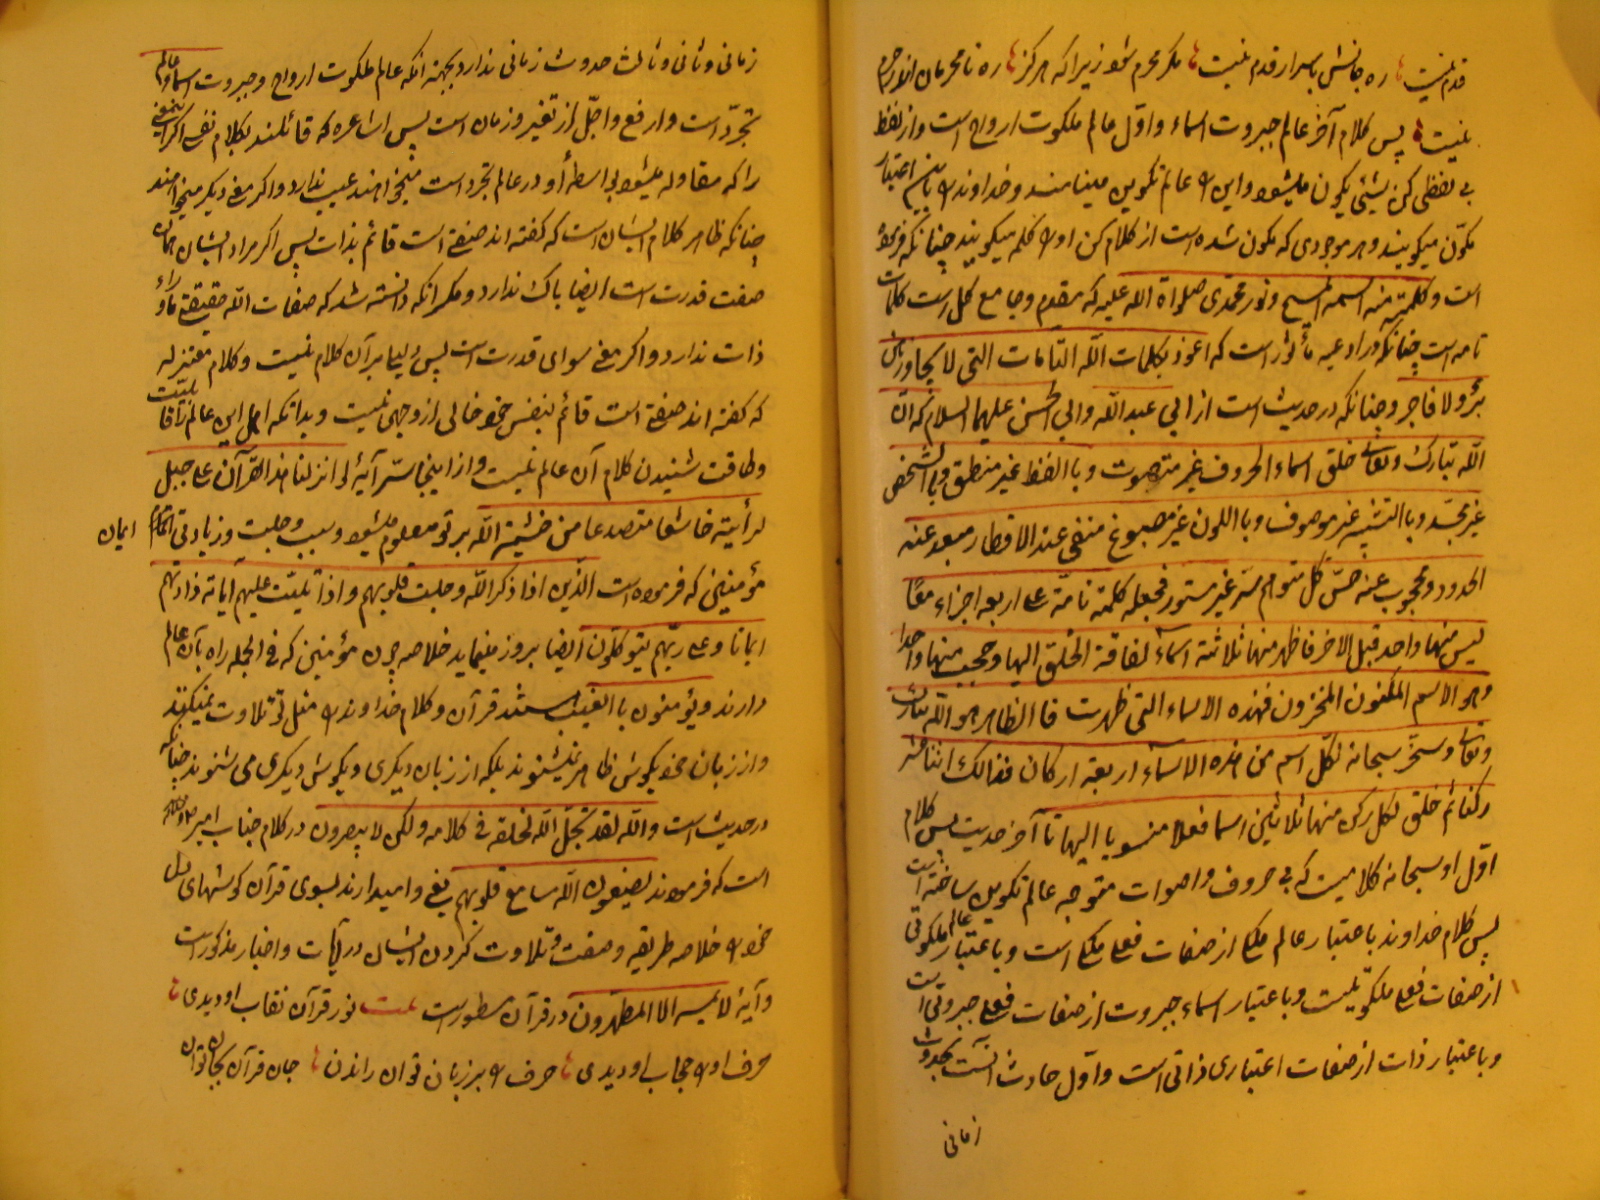 قدم نیست ره جانش باسرار قدم نیست مکر محرم شو زیرا که هرکز ره نامحرمان اندر حرم
نیست پس کلام آخر عالم جبروت اسماء و اوّل عالم ملکوت ارواح است و از لفظ
بی لفظی کن لشیئی یکون میشود و این را عالم تکوین مینامند و خداوند را باین اعتبار
مکوّن میکویند و هر موجودی که مکون شده است از کلام کن او را کلمه میکویند چنانکه فرموده
است و کلمته منه اسمه المسیح و نور محمدی صلواة الله علیه که مقدم و جامع کل است کلمات
تامه است چنانکه در ادعیه مأثور است که اعوذ بکلمات الله التامات التی لا یجاوزهن
برّ ولا فاجر و چنانکه در حدیث است از ابی عبد الله و ابی الحسن علیهما السلام که انّ
الله تبارک وتعالی خلق اسماء الحروف غیر متصوت و باللفظ غیر منطق و بالشخص
غیر مجسّد و بالتشبیه غیر موصوف و باللون غیر مصبوغ منفی عند الاقطار مبعد عنه
الحدود و محجوب عنه حسّ کل متوهم ستر غیر مستور فجعله کلمة تامّة علی اربعه اجزاء معًا
لیس منها واحد قبل الاخر فاظهر منها ثلاثة اسماء لفاقة الخلق الیها و حجب منها واحدا
وهو الاسم المکنون المخزون فهذه الاسماء التی ظهرت فالظاهر هو الله تبارک
وتعالی و سخّر سبحانه لکل اسم من هذه الاسماء اربعة ارکان فذالک اثنا عشر
رکنا ثم خلق لکل رکن منها ثلاثین اسما فعلا منسوبا الیها تا آخر حدیث پس کلام
اوّل او سبحانه کلامیست که بی حروف و اصوات متوجه عالم تکوین ساخته است
پس کلام خداوند باعتبار عالم ملک از صفات فعلی ملکی است و باعتبار عالم ملکوتی
از صفات فعلی ملکوتیست و باعتبار اسماء جبروت از صفات فعلی جبروتی است
و باعتبار ذات از صفات اعتباری ذاتی است و اوّل حادث است بحدوث
زمانی
زمانی و ثانی و ثالث حدوث زمانی ندارد بجهة انکه عالم ملکوت ارواح و جبروت اسماء عالم
تجرّد است و ارفع و اجلّ از تغیر و زمان است پس اشاعره که قائلند بکلام نفسی اکر
را که مقاوله میشود بی واسطه او در عالم تجرد است میخواهند عیب ندارد و اکر معنی دیکر میخواهند
چنانکه ظاهر کلام ایشان است که کفته اند صفتی است قائم بذات پس اکر مراد ایشان همان
صفت قدرت است ایضا باک ندارد و مکر انکه دانسته شد که صفات الله حقیقتی ماوراء
ذات ندارد و اکر معنی سوای قدرت است پس دلیلی بر آن کلام نیست و کلام معتزله
که کفته اند صفتی است قائم بنفس خود خالی از وجهی نیست و بدانکه اهل این عالم را قابلیّت
و طاقت شنیدن کلام آن عالم نیست و از اینجا سرّ آیهٔ لو انزلنا هذا القرآن علی جبل
لرأیته خاشعا متصدعا من خشیة الله بر تو معلوم میشود و سبب وجلت و زیادتی ایمان
مؤمنینی که فرموده است الّذین اذا ذکر الله وجلت قلوبهم و اذا تلیت علیهم آیاته زادتهم
ایمانا و علی ربّهم یتوکلون ایضا بروز مینماید خلاصه چون مؤمنین که فی الجمله راه بآن عالم
دارند و یؤمنون بالغیب هستند قرآن و کلام خداوند را مثل تو تلاوت نمیکنند
و از زبان خود بکوش ظاهر نمیشنوند بلکه از زبان دیکری و بکوش دیکری می شنوند چنانکه
در حدیث است والله لقد تجلّی الله لخلقه فی کلامه ولکن لا یبصرون در کلام جناب امیر
است که فرموده اند یصنعون الله مسامع قلوبهم یعنی وامیدارند بسوی قرآن کوشهای دل
خود را خلاصه طریقه و صفت و تلاوت کردن ایشان در آیات و اخبار مذکور است
و آیهٔ لا یمسه الا المطهّرون در قرآن مسطور است بیت نور قرآن نقاب او دیدی
حرف او را حجاب او دیدی حرف را بر زبان توان راندن جان قرآن بجان توان